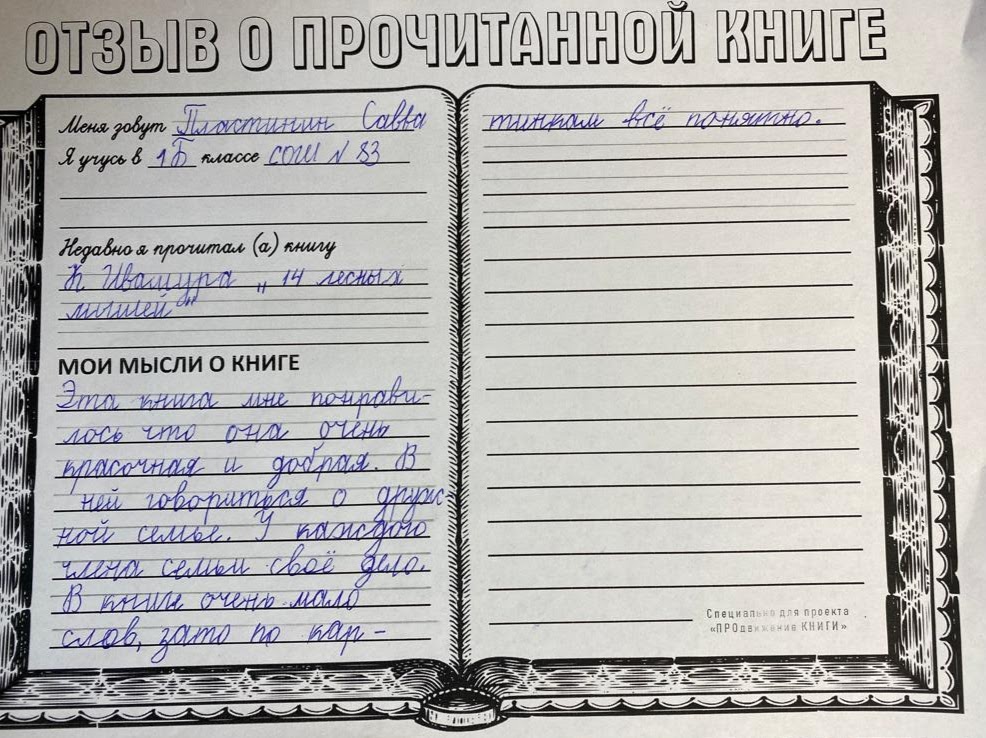 ОТЗЫВ О ПРОЧИТАННОЙ КНИГЕ
Меня зовут Пластинин Савва
Я учусь в 1Б классе СОШ N 83
Недавно я прочитал (а) книгу
К. Ивамура „ 14 лесных
мышей"
МОИ МЫСЛИ О КНИГЕ
Эта книга мне понрави-
лось что она очень
красочная и добрая. В
ней говориться о друж-
ной семье. У каждого
члена семьи своё дело.
В книге очень мало
слов, зато по кар-
тинкам всё понятно.
Специально для проекта
«ПРОдвижение КНИГИ»